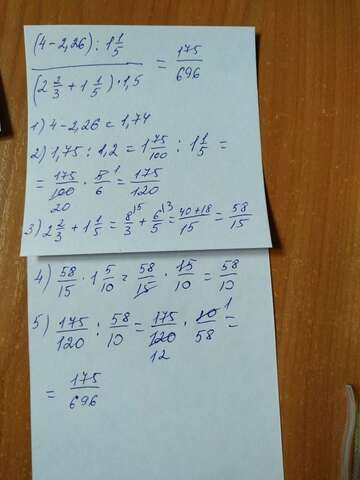 (4-2,26) : 1 1/5
/ (2 2/3 + 1 1/5) · 1,5 = 175/696
1) 4-2,26 = 1,74
2) 1,75 : 1,2 = 1 75/100 : 1 1/5 =
= 175/100 20 · 5/6 1 = 175/120
3) 2 2/3 + 1 1/5 = 8/3 (5 + 6/5 (3 = 40+18/15 = 58/15
4) 58/15 · 1 5/10 = 58/15 · 15/10 = 58/10
5) 175/120 : 58/10 = 175/120 12 · 10/58 1 =
= 175/696